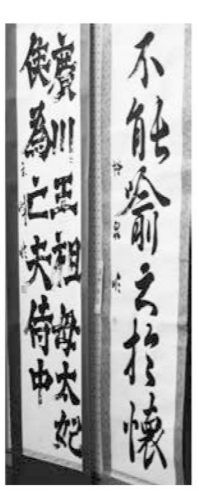 不能喻之於懷
廣川王祖母太妃
侯為亡夫侍中